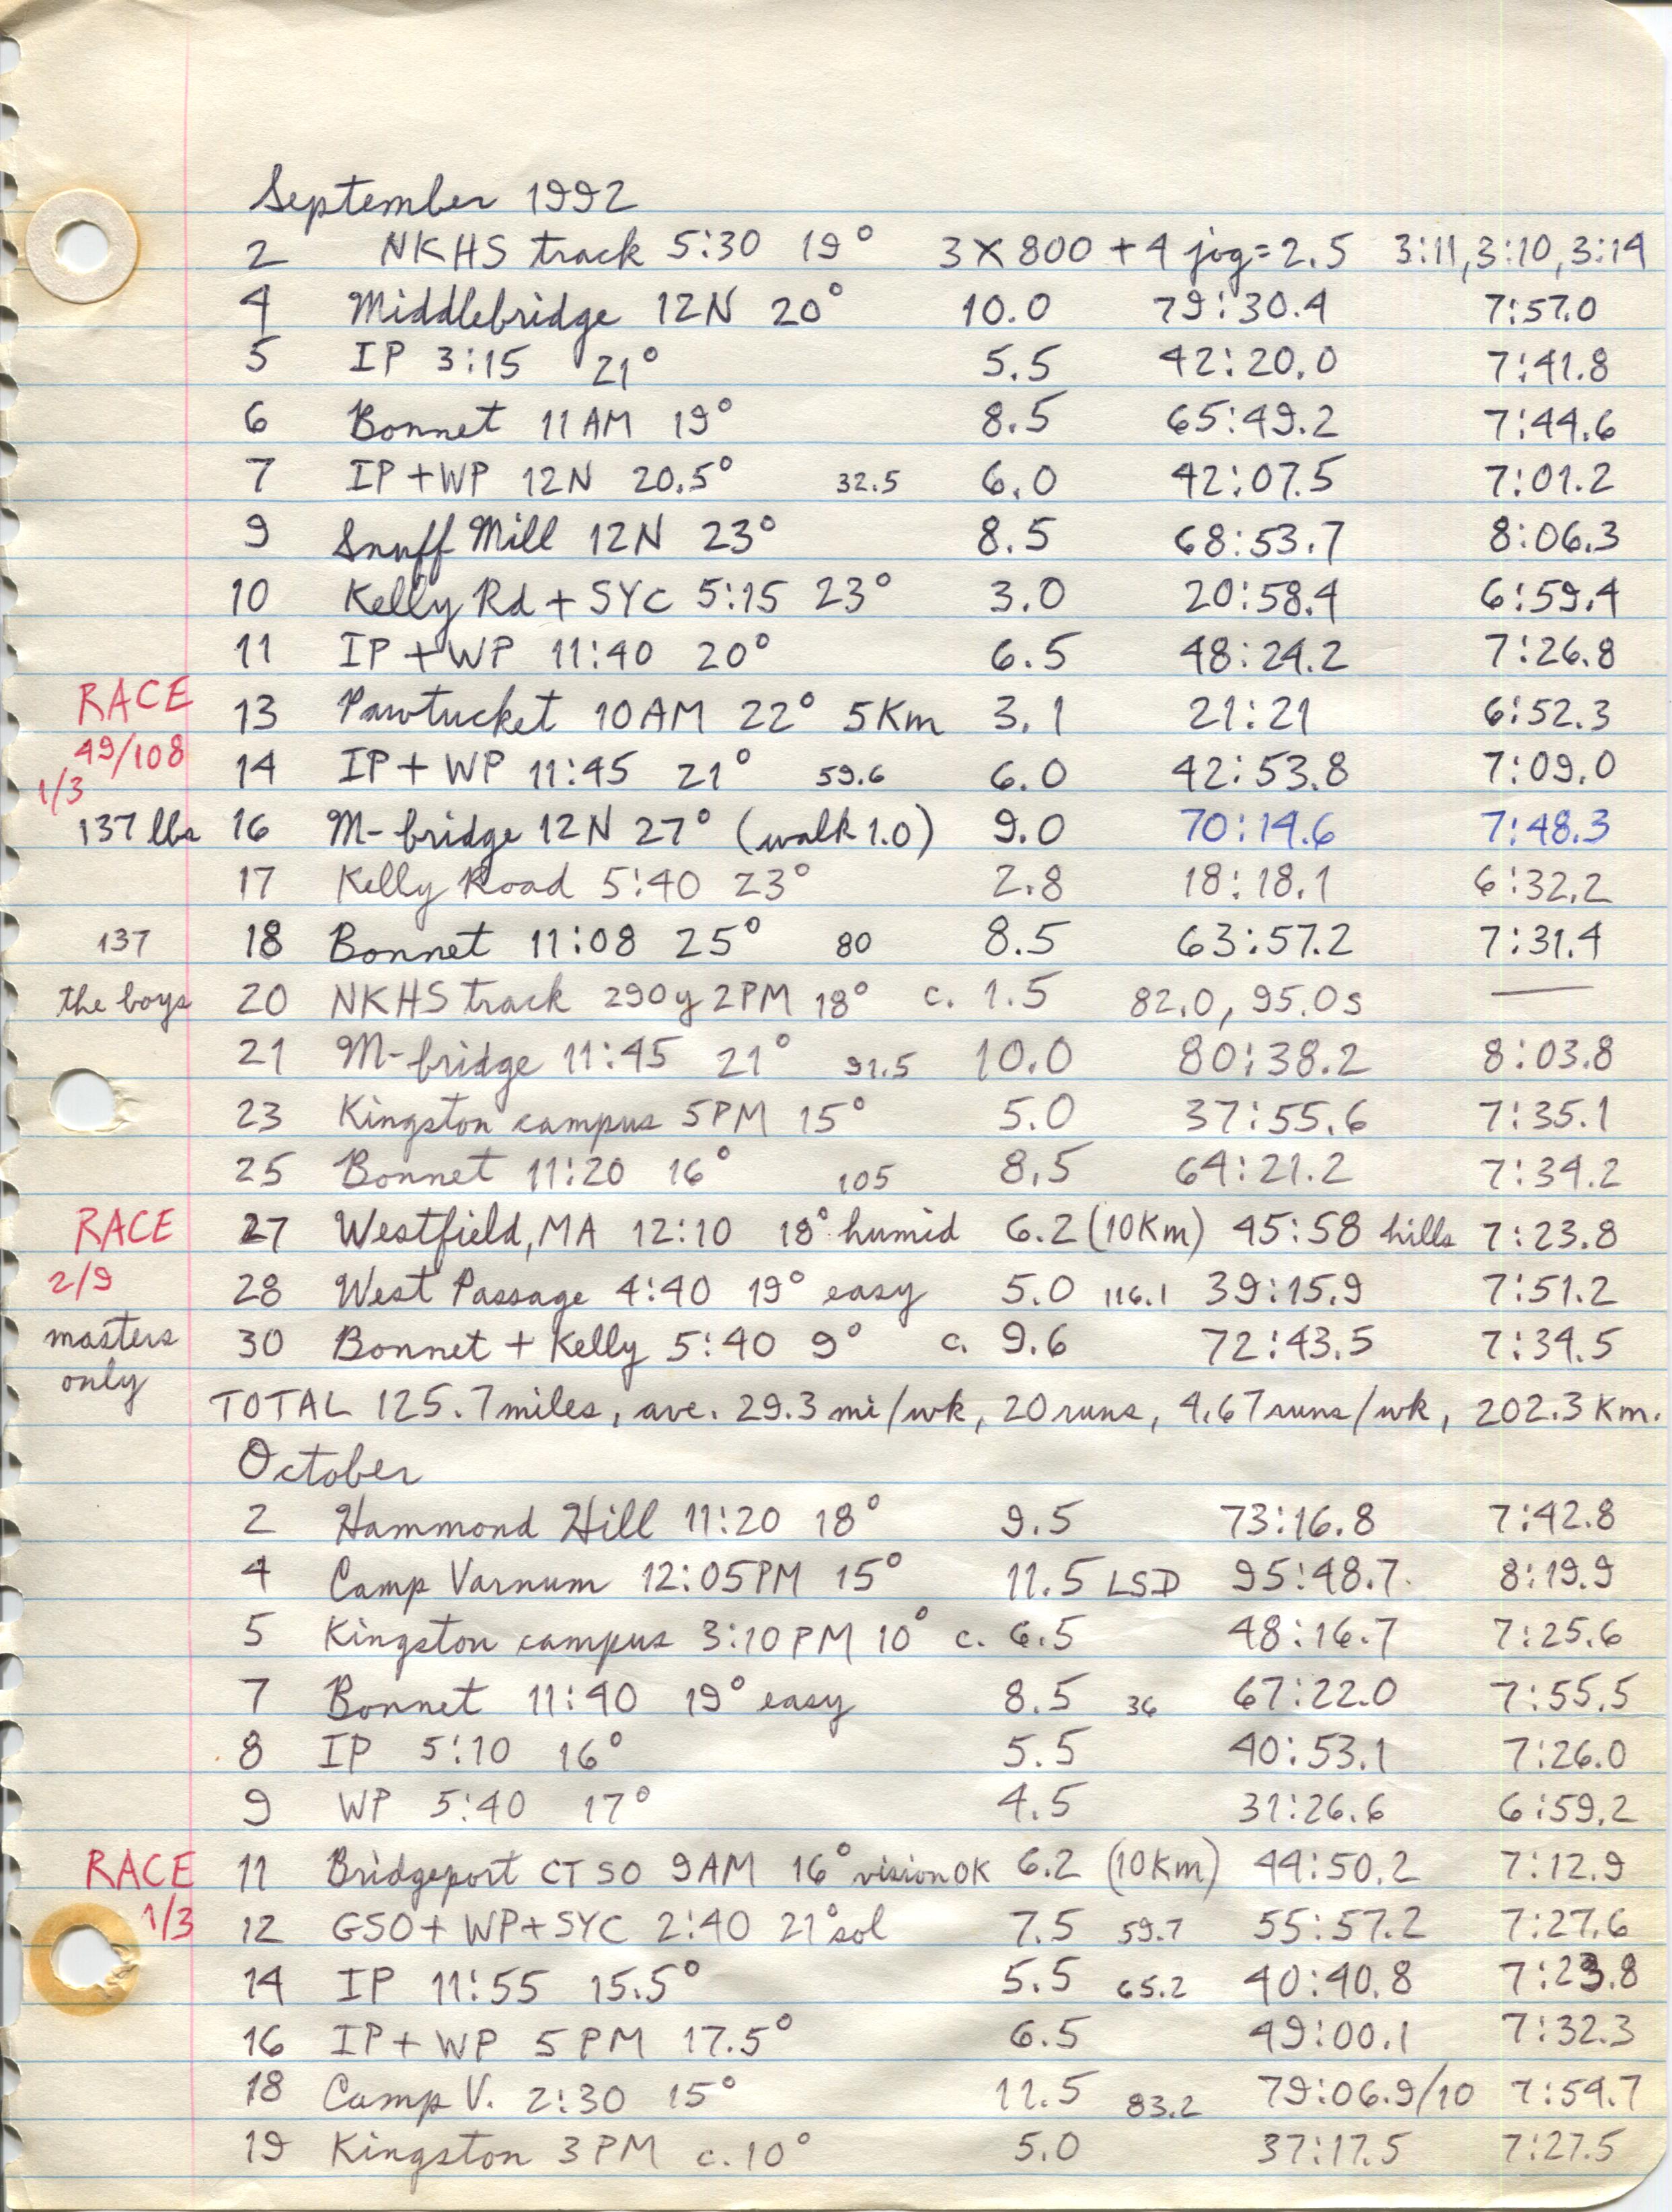 September 1992
2 NKHS track 5:30 19° 3 X 800 + 4 jog = 2.5 3:11, 3:10, 3:14
4 Middlebridge 12N 20° 10.0 79:30.4 7:57.0
5 IP 3:15 21° 5.5 42:20.0 7:41.8
6 Bonnet 11AM 19° 8.5 65:49.2 7:44.6
7 IP + WP 12N 20.5° 32.5 6.0 42:07.5 7:01.2
9 Snuff Mill 12N 23° 8.5 68:53.7 8:06.3
10 Kelly Rd + SYC 5:15 23° 3.0 20:58.4 6:59.4
11 IP + WP 11:40 20° 6.5 48:24.2 7:26.8
RACE 13 Pawtucket 10AM 22° 5Km 3.1 21:21 6:52.3
49/108
14 IP + WP 11:45 21° 59.6 6.0 42:53.8 7:09.0
1/3
137 lbs 16 M-bridge 12N 27° (walk 1.0) 9.0 70:14.6 7:48.3
17 Kelly Road 5:40 23° 2.8 18:18.1 6:32.2
137 18 Bonnet 11:08 25° 80 8.5 63:57.2 7:31.4
the boys 20 NKHS track 290y 2PM 18° c. 1.5 82.0, 95.0s —
21 M-bridge 11:45 21° 91.5 10.0 80:38.2 8:03.8
23 Kingston campus 5PM 15° 5.0 37:55.6 7:35.1
25 Bonnet 11:20 16° 105 8.5 64:21.2 7:34.2
RACE 27 Westfield, MA 12:10 18° humid 6.2 (10Km) 45:58 hills 7:23.8
2/9 28 West Passage 4:40 19° easy 5.0 116.1 39:15.9 7:51.2
masters 30 Bonnet + Kelly 5:40 9° c. 9.6 72:43.5 7:34.5
only
TOTAL 125.7 miles, ave. 29.3 mi/wk, 20 runs, 4.67 runs/wk, 202.3 Km.
October
2 Hammond Hill 11:20 18° 9.5 73:16.8 7:42.8
4 Camp Varnum 12:05PM 15° 11.5 LSD 95:48.7 8:19.9
5 Kingston campus 3:10PM 10° c. 6.5 48:16.7 7:25.6
7 Bonnet 11:40 19° easy 8.5 36 67:22.0 7:55.5
8 IP 5:10 16° 5.5 40:53.1 7:26.0
9 WP 5:40 17° 4.5 31:26.6 6:59.2
RACE 11 Bridgeport CT SO 9AM 16° vision OK 6.2 (10Km) 44:50.2 7:12.9
1/3 12 GSO + WP + SYC 2:40 21° sol 7.5 59.7 55:57.2 7:27.6
14 IP 11:55 15.5° 5.5 65.2 40:40.8 7:23.8
16 IP + WP 5 PM 17.5° 6.5 49:00.1 7:32.3
18 Camp V. 2:30 15° 11.5 83.2 79:06.9/10 7:54.7
19 Kingston 3PM c. 10° 5.0 37:17.5 7:27.5